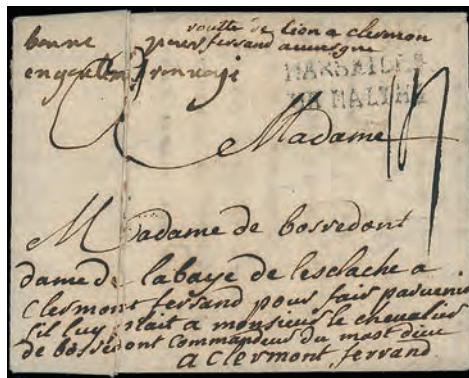 routte de lion a clermon
bonne pour ferrand auvergne
MARSEILLE
DE MALTHE
Madame
Madame de bosredont
dame de labaye de lesclache a
clermont ferrand pour fair parvenir
sil luy plait a monsieur le chevalier
de bosredont commandeur du mast dieu
a clermont ferrand